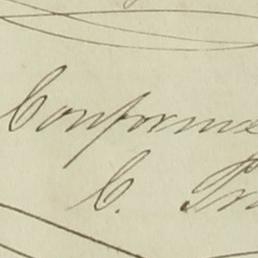 Conforme
C. Pr